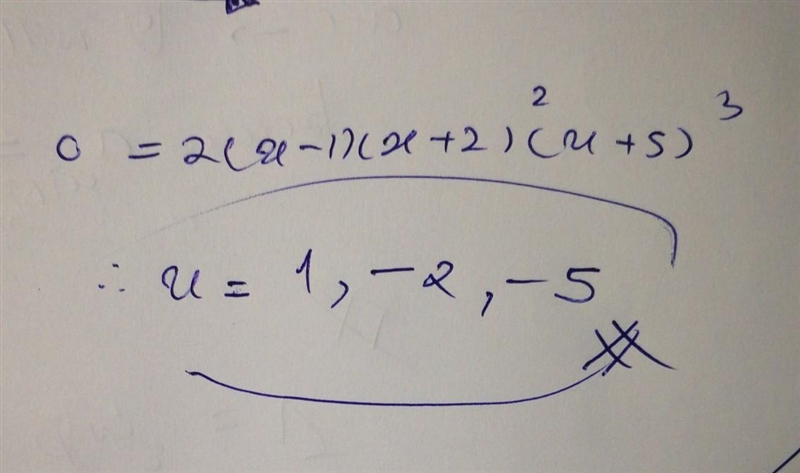 0 = 2(x-1)(x+2)²(x+5)³
∴ x = 1, -2, -5